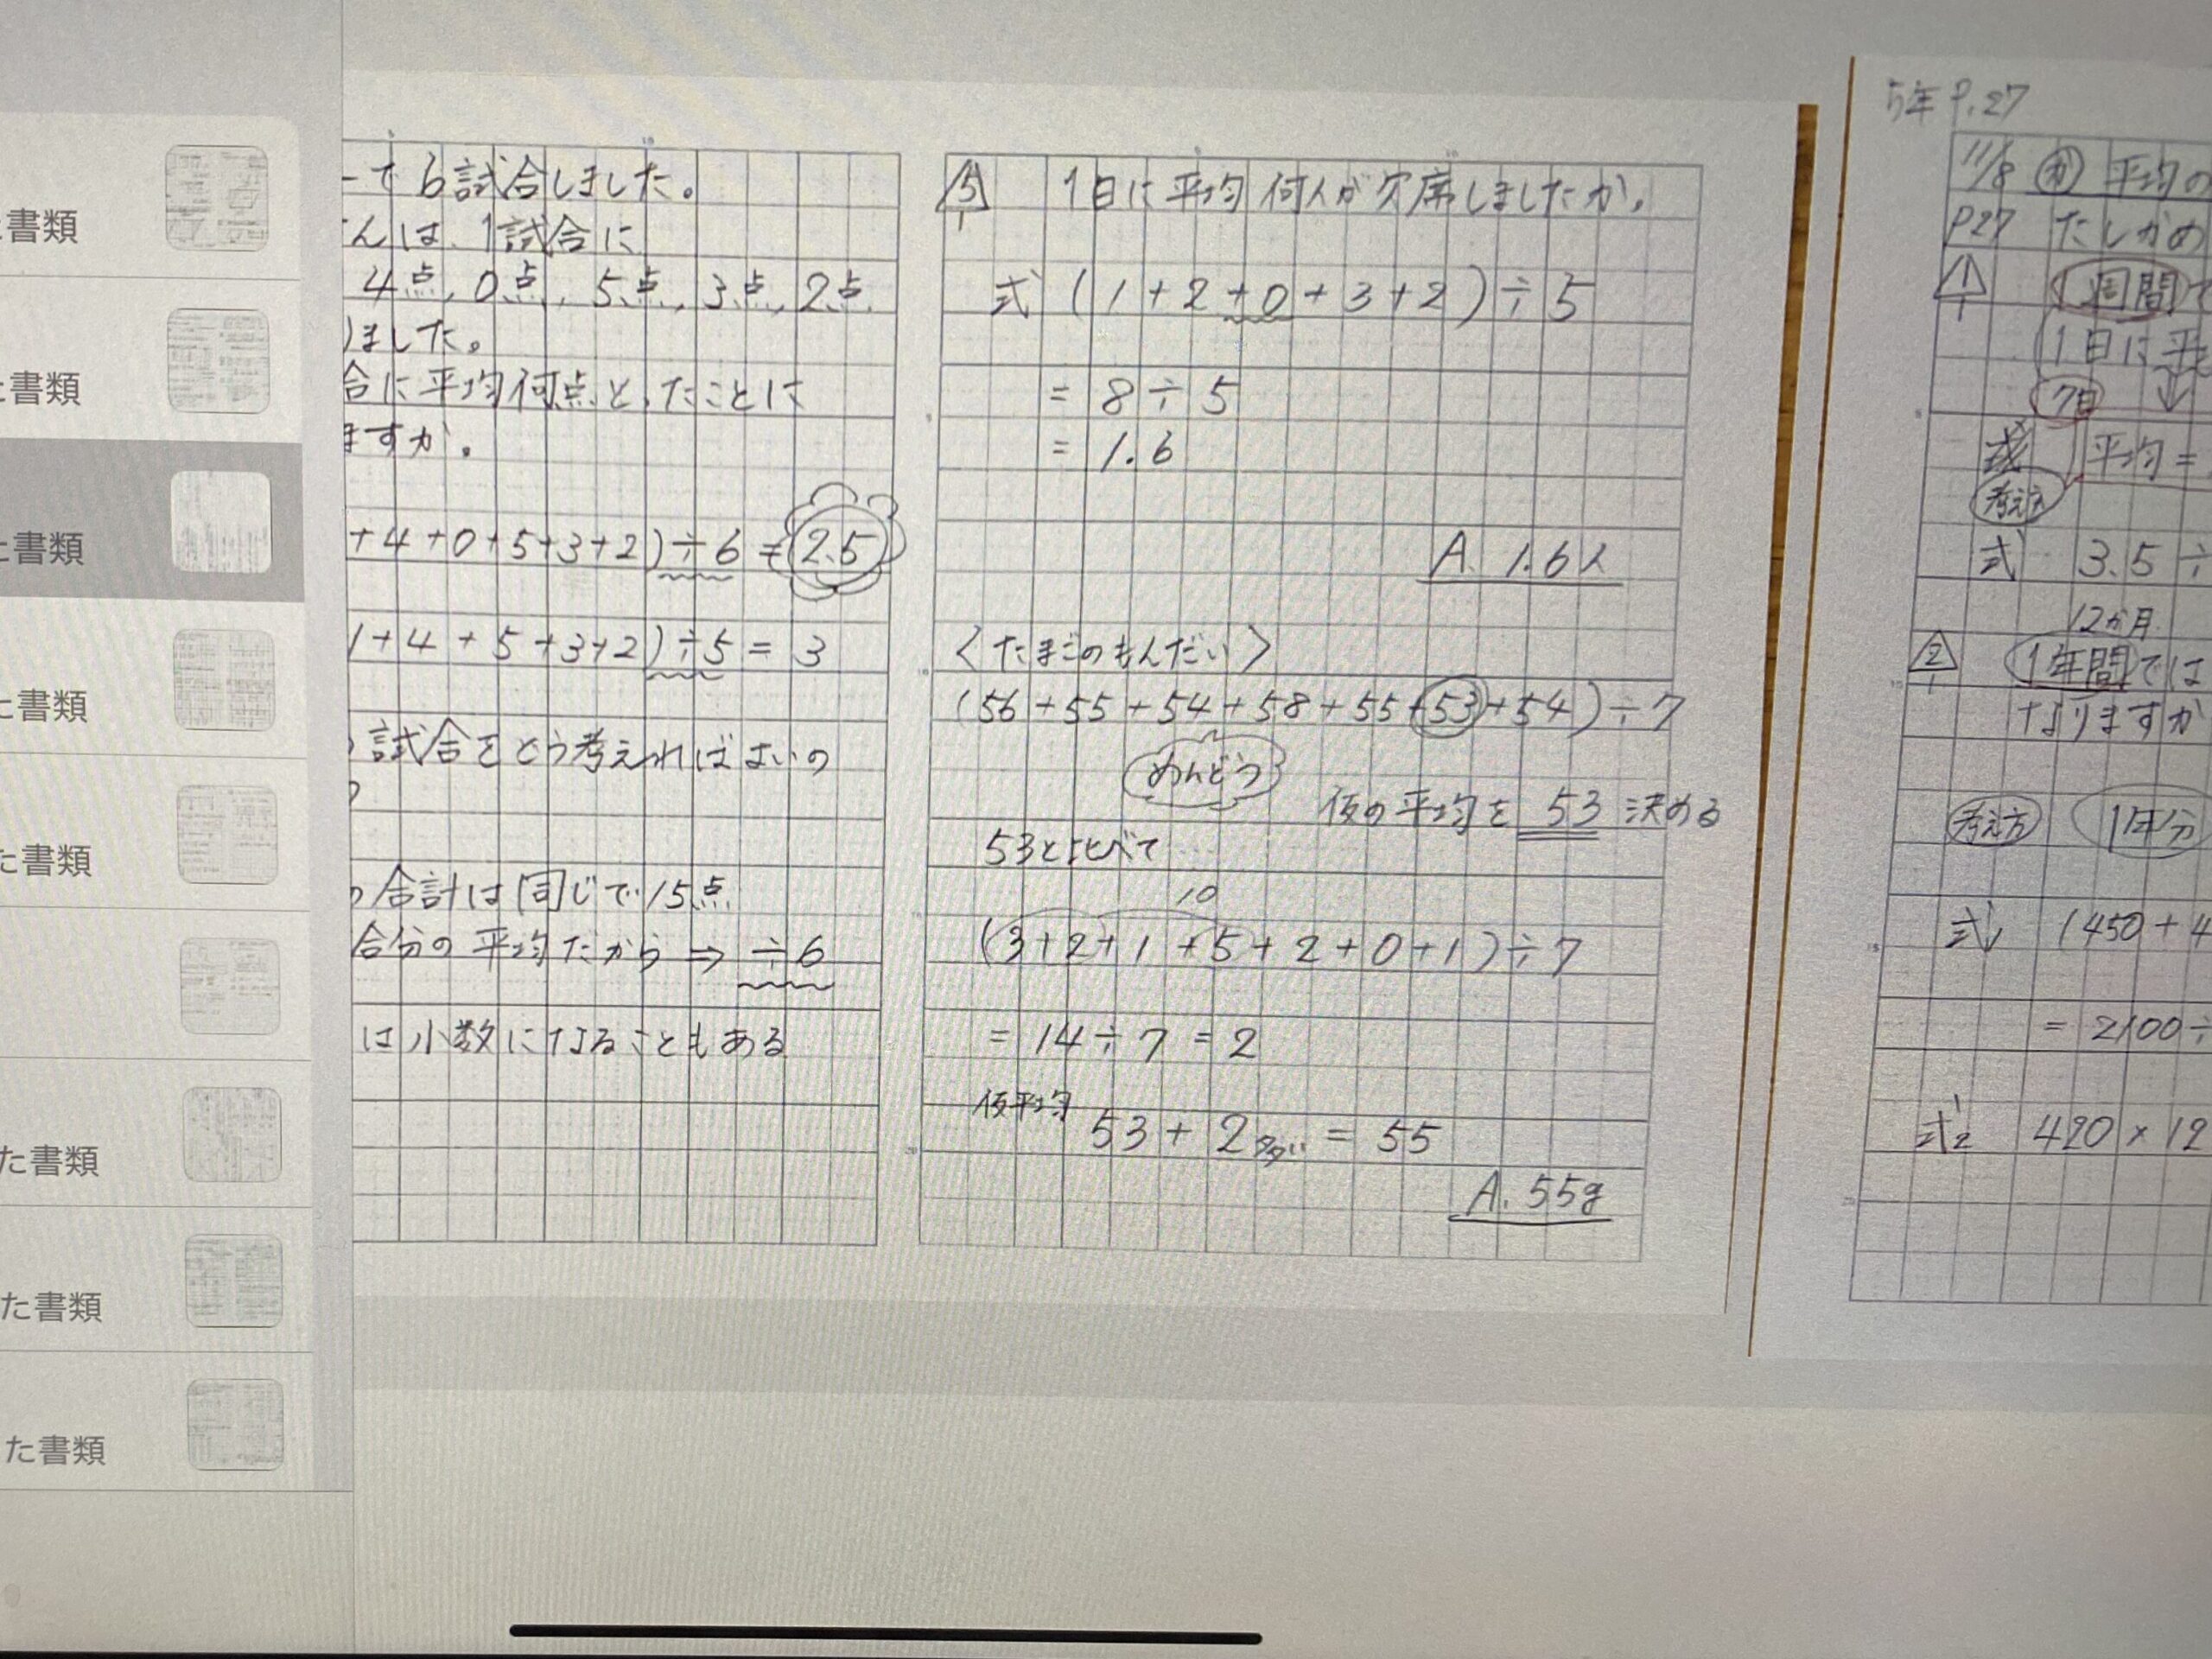 書類
書類
書類
書類
た書類
た書類
た書類
た書類
て6試合しました。
んは、1試合に
4点、0点、5点、3点、2点
りました。
合に平均何点とったことに
ますか。
+4+0+5+3+2)÷6=2.5
1+4+5+3+2)÷5=3
試合をどう考えればよいの
合計は同じで15点
合分の平均だから⇒÷6
は小数になることもある
5 1日に平均何人が欠席しましたか。
式 (1+2+0+3+2)÷5
=8÷5
=1.6
A. 1.6人
〈たまごのもんだい〉
(56+55+54+58+55+53+54)÷7
めんどう
仮の平均を 53 決める
53とくらべて
10
(3+2+1+5+2+0+1)÷7
=14÷7=2
仮平均 53+2多い=55
A. 55g
5年 P.27
11/8 平均の
P27 たしかめ
1 1週間で
1日に平
7日
式 平均=
考え方
式 3.5÷
12か月
2 1年間では
なりますか
考え方 1年分
式1 (450+4
=2100÷
式2 420×12